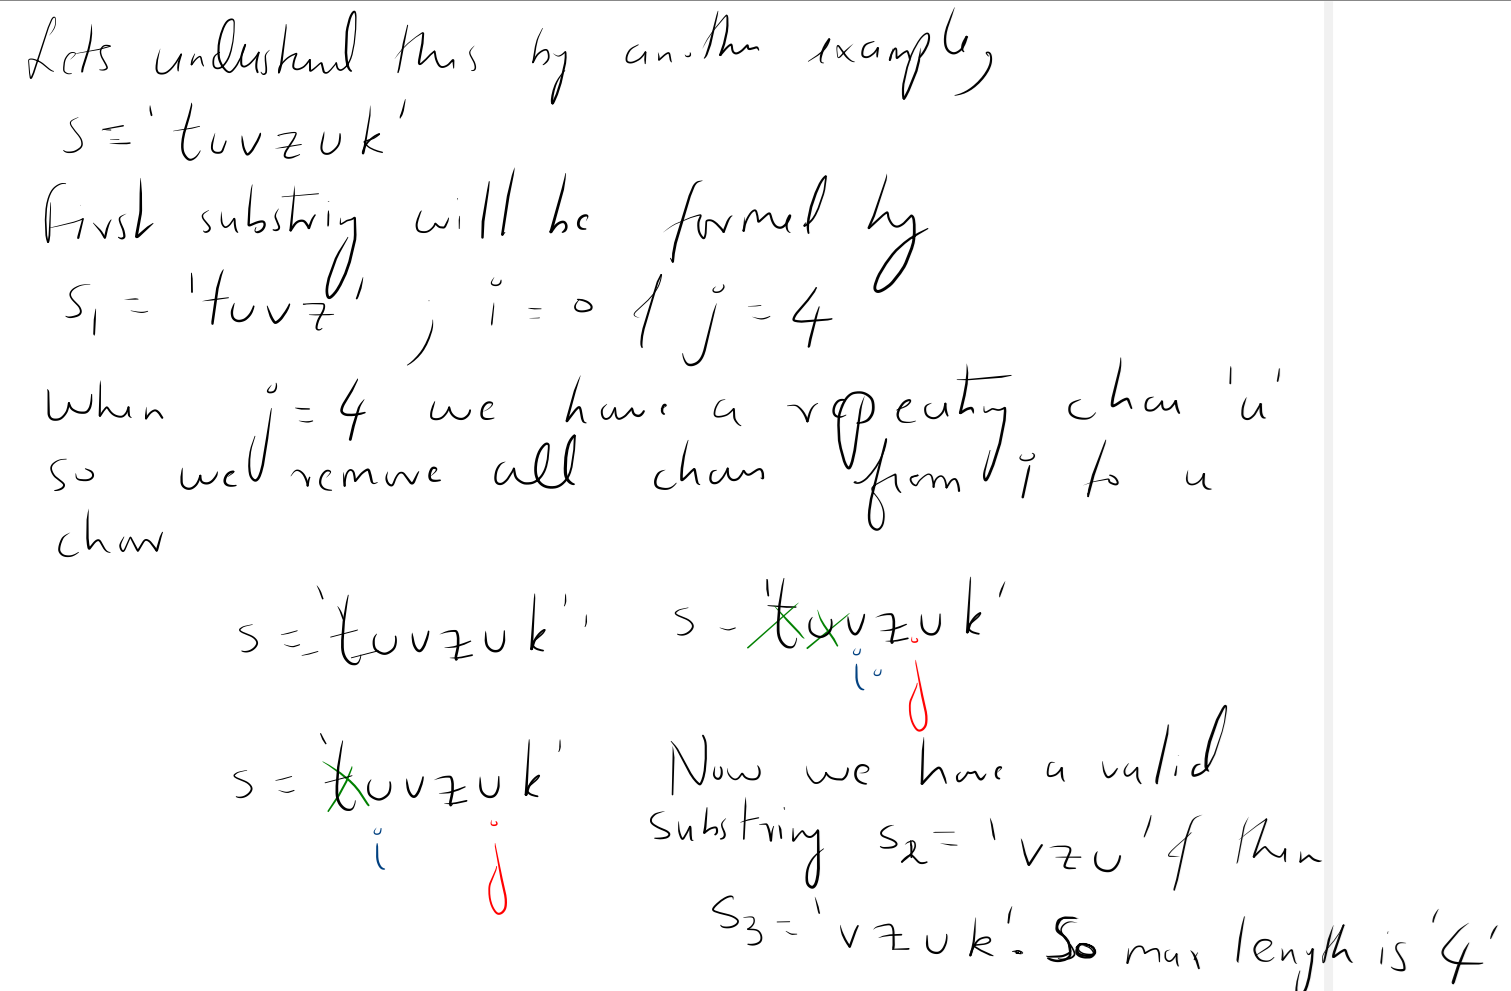 Lets understand this by another example,
s = 'tuvzuk'
First substring will be formed by
s1 = 'tuvz' ; i = 0 & j = 4
When j = 4 we have a repeating char 'u'
so we remove all char from i to u
char
s = 'tuvzuk'
s = 'tuvzuk'
i
j
s - 'tuvzuk'
i
j
Now we have a valid
substring s2 = 'vzu' & then
s3 = 'vzuk'. So max length is '4'